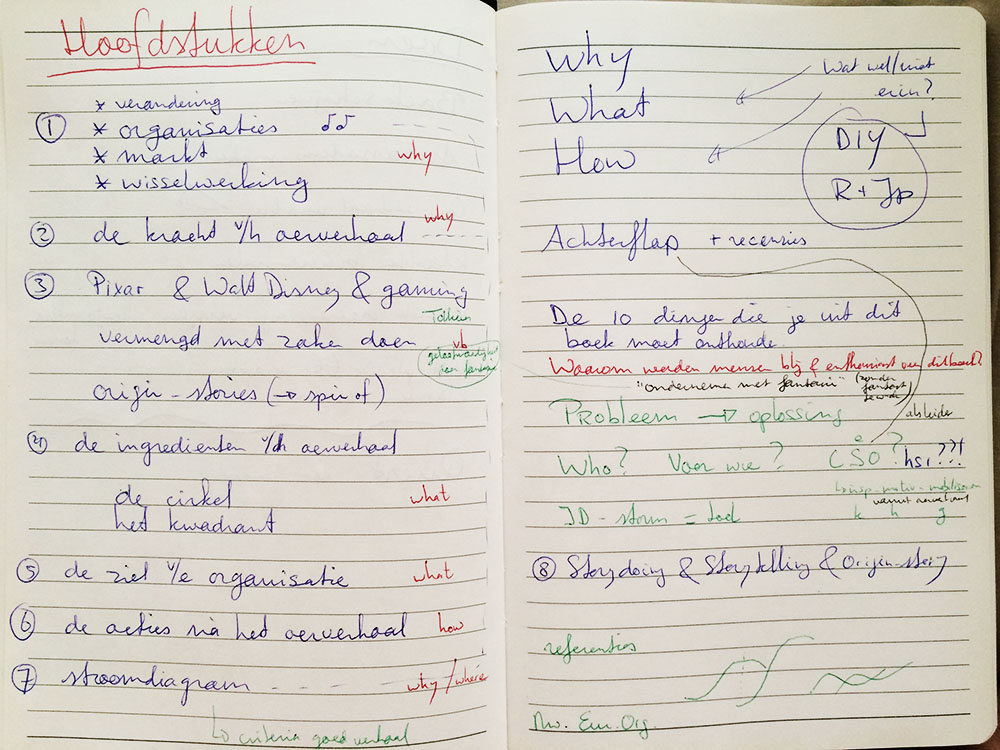 Hoofdstukken
* verandering
① * organisaties
* markt why
* wisselwerking
② de kracht v/h oerverhaal why
③ Pixar & Walt Disney & gaming
Tolkien
vermengd met zaken doen vb
origin-stories (→ spin of)
④ de ingredienten v/h oerverhaal
de cirkel what
het kwadrant
⑤ de ziel v/e organisatie what
⑥ de acties via het oerverhaal how
⑦ stroomdiagram why/where
↳ criteria goed verhaal
Why
Wat wel/niet
erin?
What
How
DIY
R + Jp
Achterflap + recensies
De 10 dingen die je uit dit
boek moet onthoude
Waarom worden mensen blij & enthousiast over dit boek?
"onderneme met fantasie" (zonder
Probleem → oplossing
Who? Voor wie? CSO? hsi??!
JD-storm = tool
⑧ Storydoing & Storytelling & Origin-story
referenties
Nw. Eur. Org.